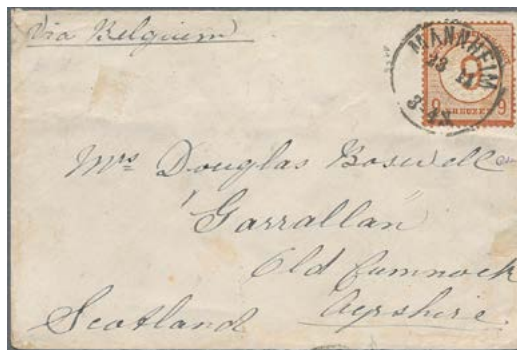 Via Belgium
MANNHEIM
13 11
9
9 KREUZER 9
Mrs Douglas Boswell
"Garrallan"
Old Cumnock
Ayrshire
Scotland